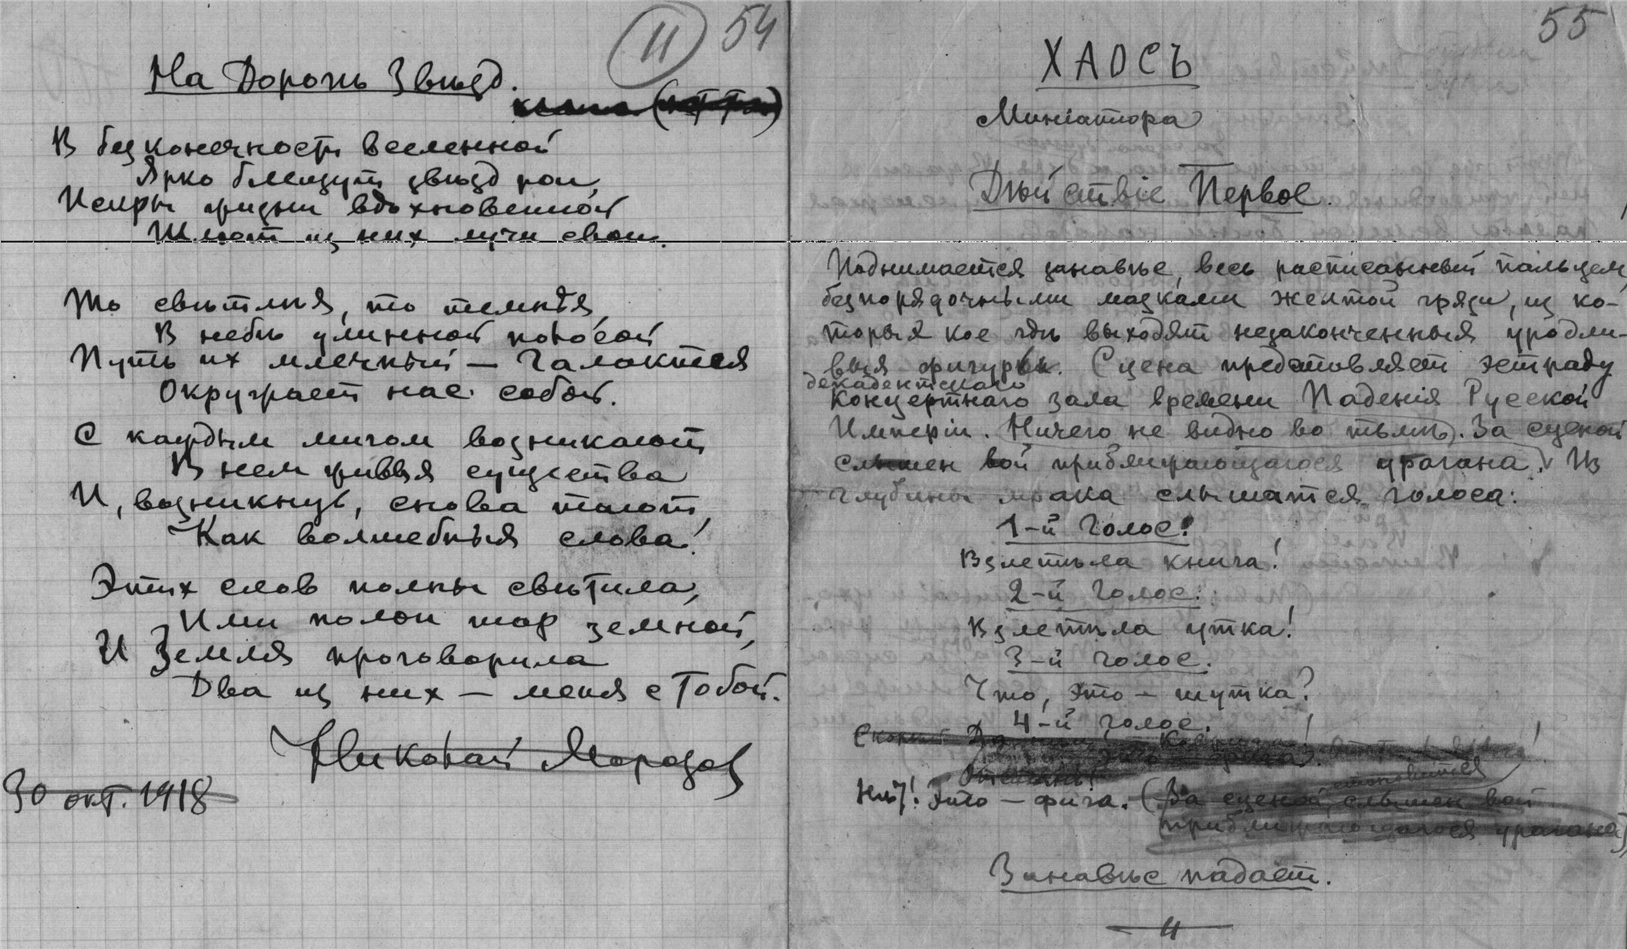 11 54
На Дорогѣ Звѣзд.
В безконечности вселенной
Ярко блещут звѣзд рои,
Искры жизни вдохновенной
Шлют из них лучи свои.
То свѣтлѣя, то темнѣя,
В небѣ длинной полосой
Путь их млечный — Галактея
Окружает нас собой.
С каждым мигом возникают
В нем живыя существа
И, возникнув, снова тают,
Как волшебныя слова!
Этих слов полны свѣтила,
Ими полон шар земной,
И Земля проговорила
Два из них — меня с Тобой.
Николай Морозов
30 окт. 1918
55
ХАОСЪ
Миніатюра
Дѣйствіе Первое.
Поднимается занавѣс, весь расписанный пальцем,
безпорядочными мазками желтой грязи, из ко-
торыя кое гдѣ выходят незаконченныя уродли-
выя фигуры. Сцена представляет эстраду
декадентскаго
концертнаго зала времени Паденія Русской
Имперіи. (Ничего не видно во тьмѣ). За сценой
слышен вой приближающагося урагана. Из
глубины мрака слышатся голоса:
1-й Голос:
Взлетѣла книга!
2-й Голос:
Взлетѣла утка!
3-й голос.
Что, это — шутка?
4-й голос.
Нѣт! Это — фига. (За сценой слышен вой
становится
приближающагося урагана)
Занавѣс падает.